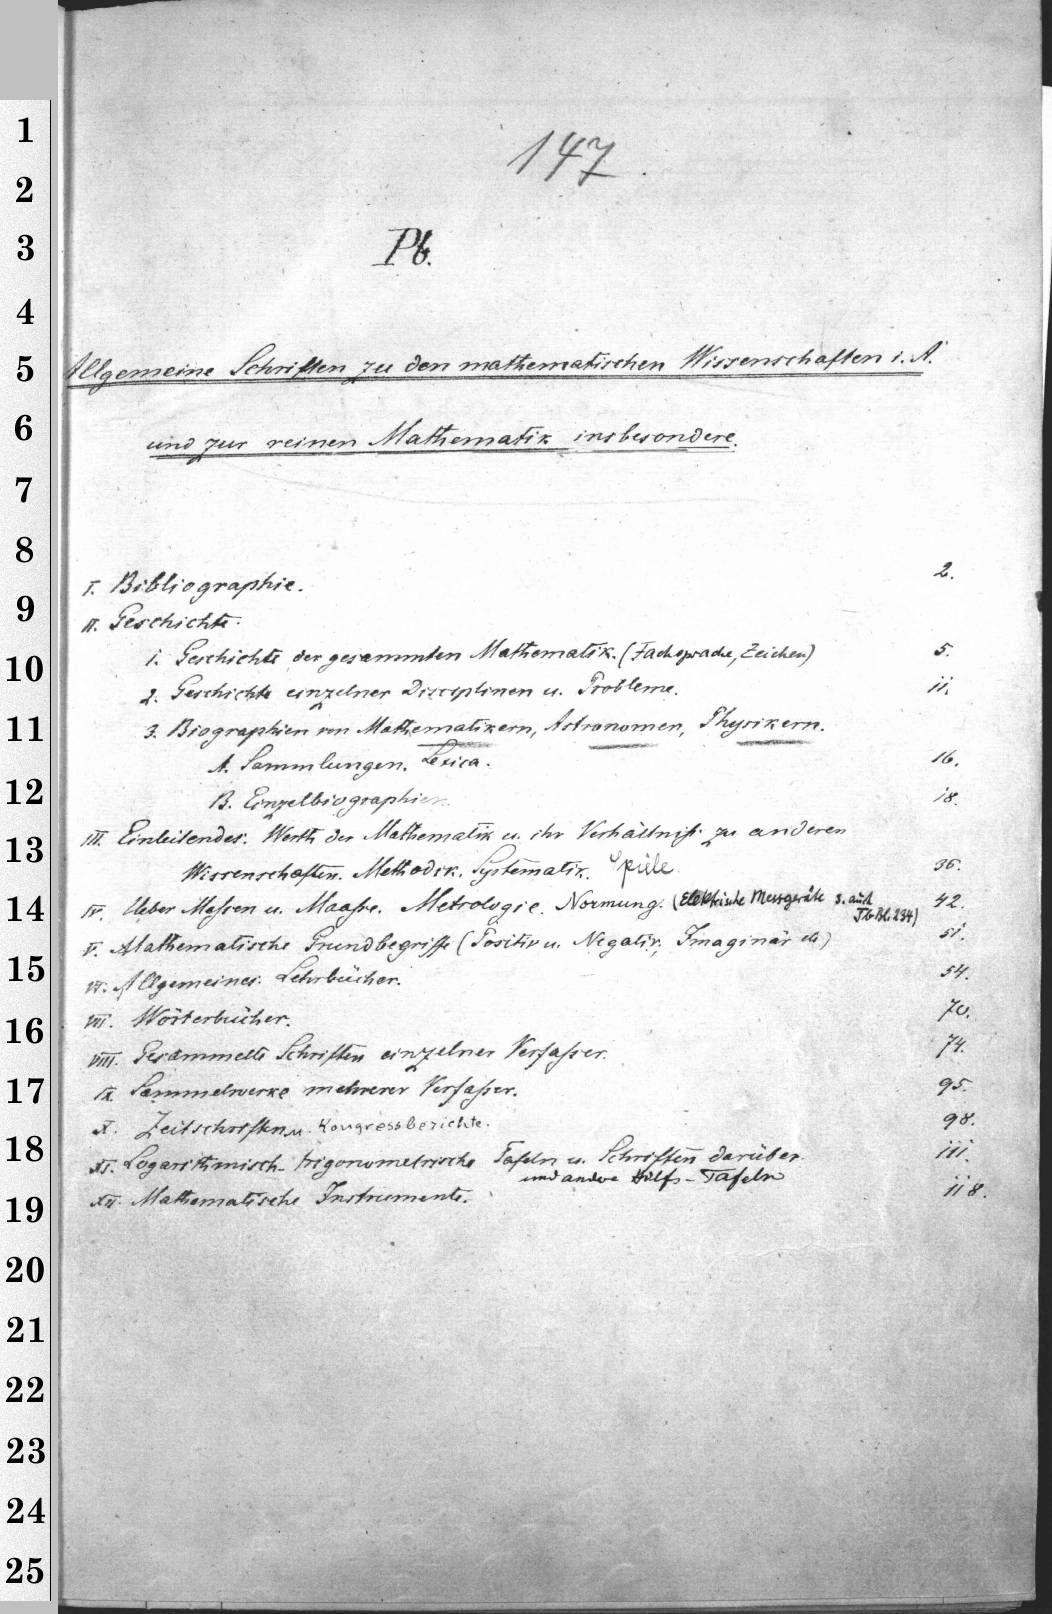 147.
Pb.
Allgemeine Schriften zu den mathematischen Wissenschaften i. A.
und zur reinen Mathematik insbesondere.
I. Bibliographie. 2.
II. Geschichte.
1. Geschichte der gesammten Mathematik. (Fachsprache, Zeichen) 5.
2. Geschichte einzelner Disciplinen u. Probleme. 11.
3. Biographien von Mathematikern, Astronomen, Physikern.
A. Sammlungen. Lexica. 16.
B. Einzelbiographien. 18.
III. Einleitendes. Werth der Mathematik u. ihr Verhältniß zu anderen
Wissenschaften. Methodik. Systematik. Spiele 36.
IV. Ueber Messen u. Maaße. Metrologie. Normung. (Elektrische Messgeräte s. auch 42.
Bl. 234)
V. Mathematische Grundbegriffe (Positiv u. Negativ, Imaginär etc) 51.
VI. Allgemeines. Lehrbücher. 54.
VII. Wörterbücher. 70.
VIII. Gesammelte Schriften einzelner Verfasser. 74.
IX. Sammelwerke mehrerer Verfasser. 95.
X. Zeitschriften u. Kongressberichte. 98.
XI. Logarithmisch-trigonometrische Tafeln u. Schriften darüber. 111.
und andere Hilfs-Tafeln
XII. Mathematische Instrumente. 118.
1
2
3
4
5
6
7
8
9
10
11
12
13
14
15
16
17
18
19
20
21
22
23
24
25